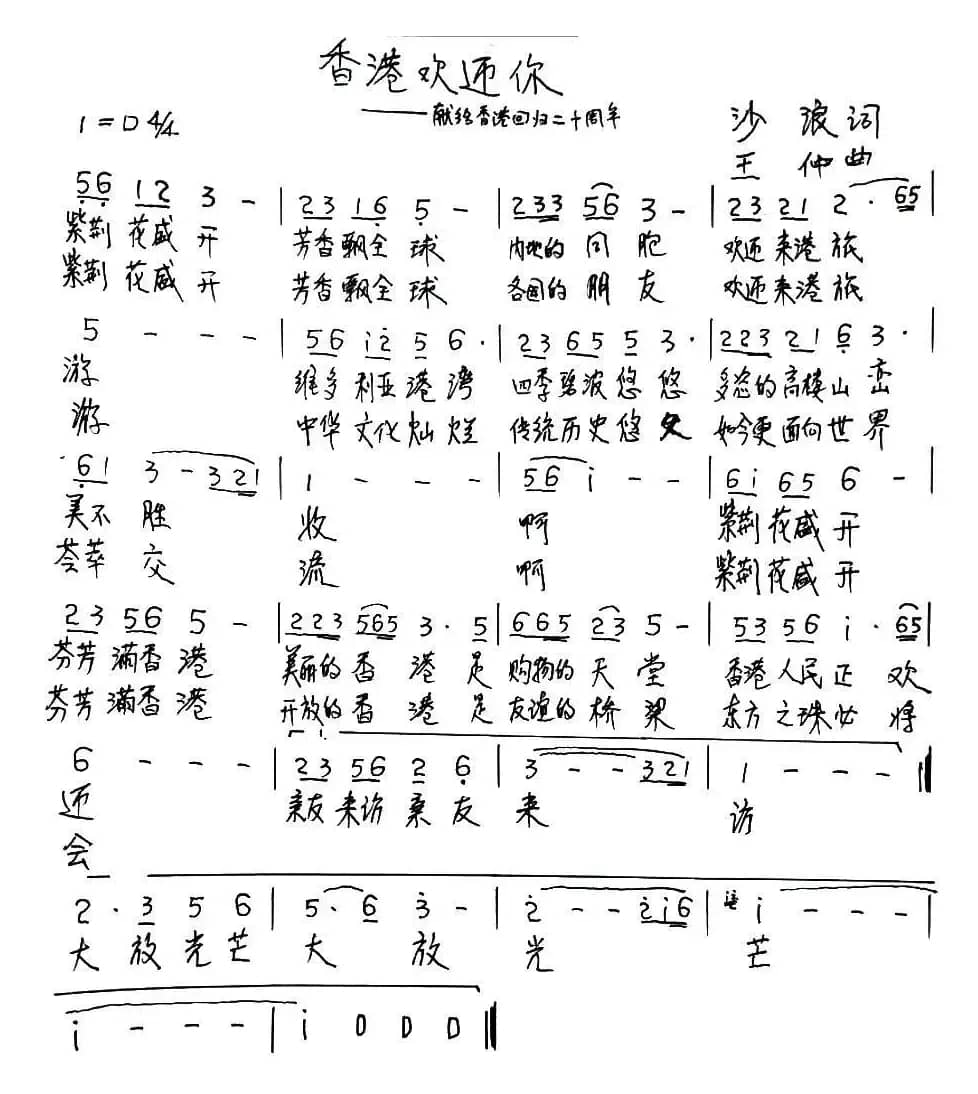 香港欢迎你
——献给香港回归二十周年
1=D 4/4
沙浪词
王仲曲
56 12 3 - | 23 16 5 - | 233 56 3 - | 23 21 2 · 65 |
紫荆花盛开 芳香飘全球 内地的同胞 欢迎来港旅
紫荆花盛开 芳香飘全球 各国的朋友 欢迎来港旅
5 - - - | 56 i2 5 6 · | 23 65 5 3 · | 223 21 6 3 · |
游 维多利亚港湾 四季碧波悠悠 多姿的高楼山峦
游 中华文化灿烂 传统历史悠久 如今更面向世界
61 3 - 321 | 1 - - - | 56 i - - | 6i 65 6 - |
美不胜 收 啊 紫荆花盛开
荟萃交 流 啊 紫荆花盛开
23 56 5 - | 223 565 3 · 5 | 665 23 5 - | 53 56 i · 65 |
芬芳满香港 美丽的香港是 购物的天堂 香港人民正欢
芬芳满香港 开放的香港是 友谊的桥梁 东方之珠必将
6 - - - | 23 56 2 6 | 3 - - 321 | 1 - - - ‖
迎 亲友来访亲友来访
会
2 · 3 5 6 | 5 · 6 3 - | 2 - - 2i6 | i - - - |
大放光芒 大放光芒
i - - - | i 0 0 0 ‖